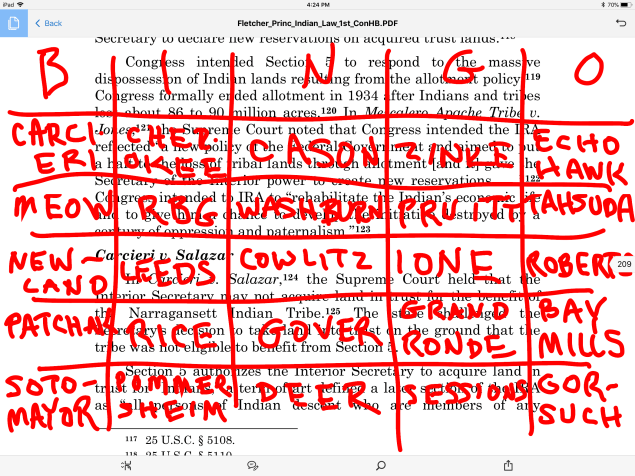 iPad 4:24 PM 70%
Back Fletcher_Princ_Indian_Law_1st_ConHB.PDF
Secretary to declare new reservations on acquired trust lands.
B I N G O
Congress intended Section 5 to respond to the massive
dispossession of Indian lands resulting from the allotment policy.119
Congress formally ended allotment in 1934 after Indians and tribes
lost about 86 to 90 million acres.120 In Mescalero Apache Tribe v.
Jones,121 the Supreme Court noted that Congress intended the IRA
CARCIERI CHEROKEE CASON ZINKE ECHO HAWK
reflected a new policy of the Federal Government and aimed to put
a halt to the loss of tribal lands through allotment and gave the
Secretary of the Interior power to create new reservations 122
Congress intended to IRA to "rehabilitate the Indian's economic life
MEOW RBG WASHBURN PRUITT TAHSUDA
and to give him a chance to develop the initiative destroyed by a
century of oppression and paternalism."123
Carcieri v. Salazar
NEWLAND LEEDS COWLITZ IONE ROBERTS
209
In Carcieri v. Salazar,124 the Supreme Court held that the
Interior Secretary may not acquire land in trust for the benefit of
the Narragansett Indian Tribe.125 The state challenged the
PATCHAK RICE GOVER GRAND RONDE BAY MILLS
Secretary's decision to take land into trust on the ground that the
tribe was not eligible to benefit from Section 5.
Section 5 authorizes the Interior Secretary to acquire land in
SOTO-MAYOR POMMERSHEIM DEER SESSIONS GOR-SUCH
trust for "Indians," a term of art defined a later section of the IRA
as "all persons of Indian descent who are members of any
117 25 U.S.C. § 5108.
118 25 U.S.C. § 5110.